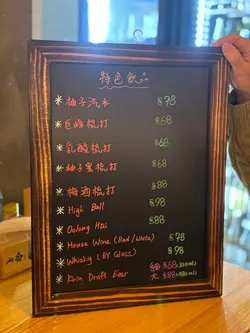 特色飲品
*柚子汽水 $78
*巨峰梳打 $68
*乳酸梳打 $68
*柚子蜜梳打 $68
*梅酒梳打 $88
*High Ball $98
*Oolong Hai $88
*House Wine (Red/White) $78
*Whisky (BY Glass) $98
*Kirin Draft Beer 細 $68 (300ml)
大 $88 (480ml)